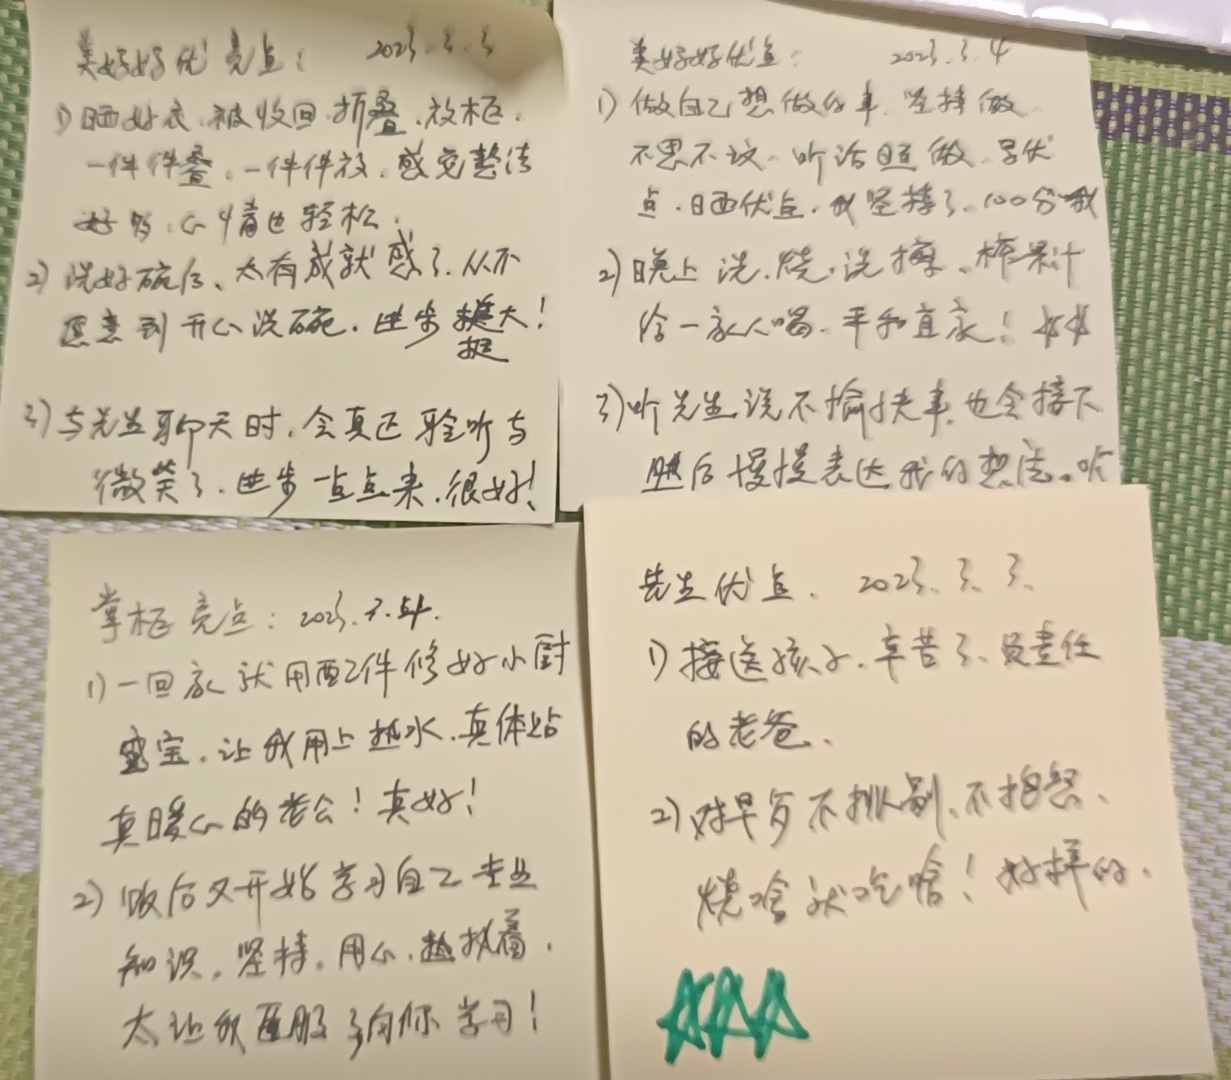 美好好优亮点： 2023.3.3
1) 晒好衣.被收回.折叠.放柜.
一件件叠.一件件放.感觉整洁
好多.心情也轻松.
2) 洗好碗后、太有成就感了.从不
愿意到开心洗碗.进步挺大！
挺
3) 与先生聊天时.会真正聆听与
微笑了.进步一点点来.很好！
美好好优点： 2023.3.4
1) 做自己想做的事.坚持做
不思不议.听话照做.写优
点.晒优点.我坚持了.100分我
2) 晚上洗.烧.洗.榨果汁
给一家人喝.平和自家！
3) 听先生说不愉快事.也会接下
然后慢慢表达我的想法。听
掌柜亮点：2023.3.4.
1) 一回家就用配件修好小厨
宝.让我用上热水.真体贴
真暖心的老公！真好！
2) 饭后又开始学习自己专业
知识.坚持.用心.执着.
太让我佩服了向你学习！
先生优点. 2023.3.3.
1) 接送孩子.辛苦了.负责任
的老爸.
2) 对早歺不挑剔.不抱怨.
烧啥就吃啥！好样的.